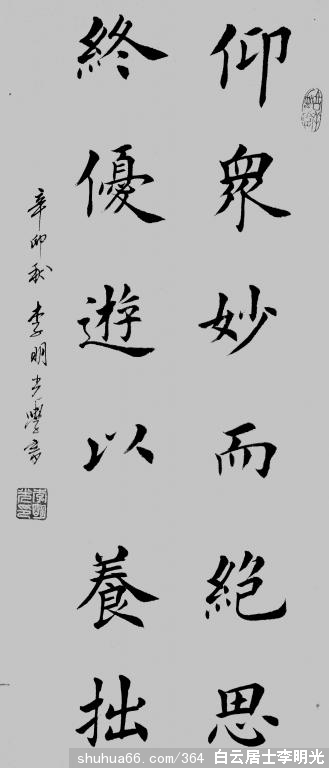 仰衆妙而絕思
終優遊以養拙
辛卯秋李明光學書
shuhua66.com/364 白云居士李明光